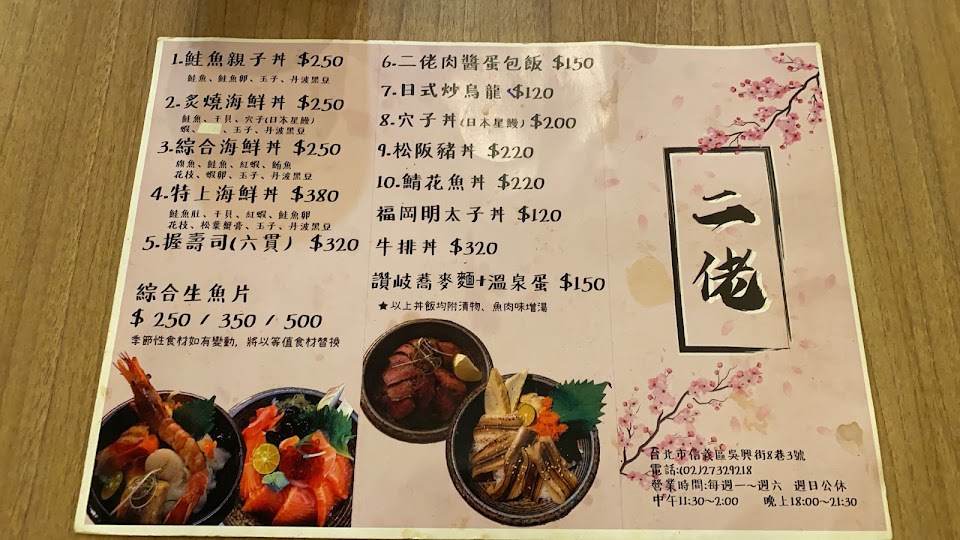 1.鮭魚親子丼 $250
鮭魚、鮭魚卵、玉子、丹波黑豆
2.炙燒海鮮丼 $250
鮭魚、干貝、穴子(日本星鰻)
蝦、 、玉子、丹波黑豆
3.綜合海鮮丼 $250
旗魚、鮭魚、紅蝦、鮪魚
花枝、蝦卵、玉子、丹波黑豆
4.特上海鮮丼 $380
鮭魚肚、干貝、紅蝦、鮭魚卵
花枝、松葉蟹膏、玉子、丹波黑豆
5.握壽司(六貫) $320
綜合生魚片
$ 250 / 350 / 500
季節性食材如有變動，將以等值食材替換
6.二佬肉醬蛋包飯 $150
7.日式炒烏龍 $120
8.穴子丼(日本星鰻) $200
9.松阪豬丼 $220
10.鯖花魚丼 $220
福岡明太子丼 $120
牛排丼 $320
讚岐蕎麥麵+溫泉蛋 $150
★以上丼飯均附漬物、魚肉味增湯
二
佬
台北市信義區吳興街8巷3號
電話:(02)27329218
營業時間:每週一~週六 週日公休
中午11:30~2:00 晚上18:00~21:30